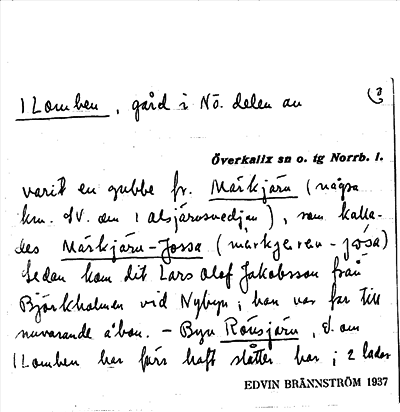 1 Lomben, gård i Nö. delen av (3
Överkalix sn o. tg Norrb. l.
varit en gubbe fr. Märkjärn (några
km. SV. om 1 alsjärvsvedjan), som kalla-
des Märkjärn-Jossa (
Sedan kom dit Lars Olof Jakobsson från
Björkholmen vid Nybyn; han var far till
nuvarande åbon. – Byn Rönsjärn, S. om
1 Lomben har förr haft slåtter här i 2 lador
EDVIN BRÄNNSTRÖM 1937